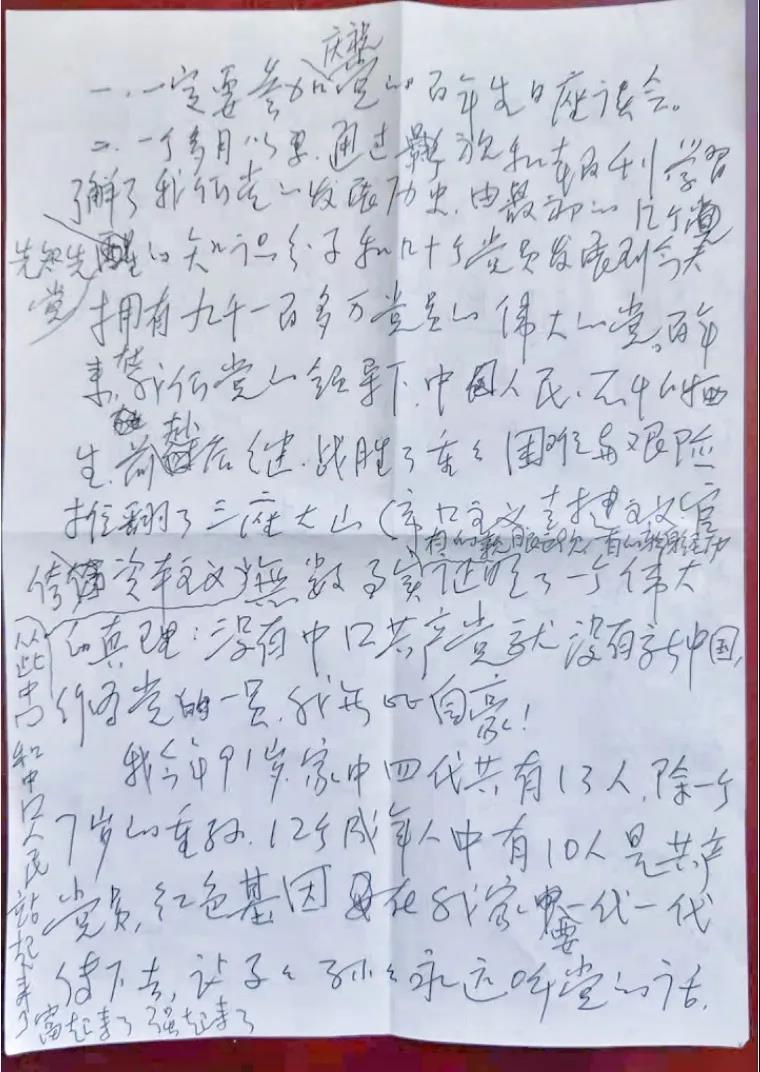 庆祝
一.一定要参加党的百年生日座谈会。
二.一个多月以来,通过电视和书报刊学习
了解了我们党的发展历史,由最初的12个
先知先
醒的知识分子和几十个党员发展到今天
党
拥有九千一百多万党员的伟大的党。百年
来,在我们党的领导下,中国人民,不怕牺
生,前赴后继,战胜了重重困难与艰险
推翻了三座大山(帝口主义封建主义官
僚资本主义)无数事实证明了一个伟大
的真理:没有中口共产党就没有新中国,
作为党的一员,我无比自豪!
我今年91岁,家中四代共有13人,除一个
7岁的重孙,12个成年人中有10人是共产
党员,红色基因要在我家一代一代
传下去,让子子孙孙永远听党的话,
从此中口和中口人民站起来了
富起来了 强起来了